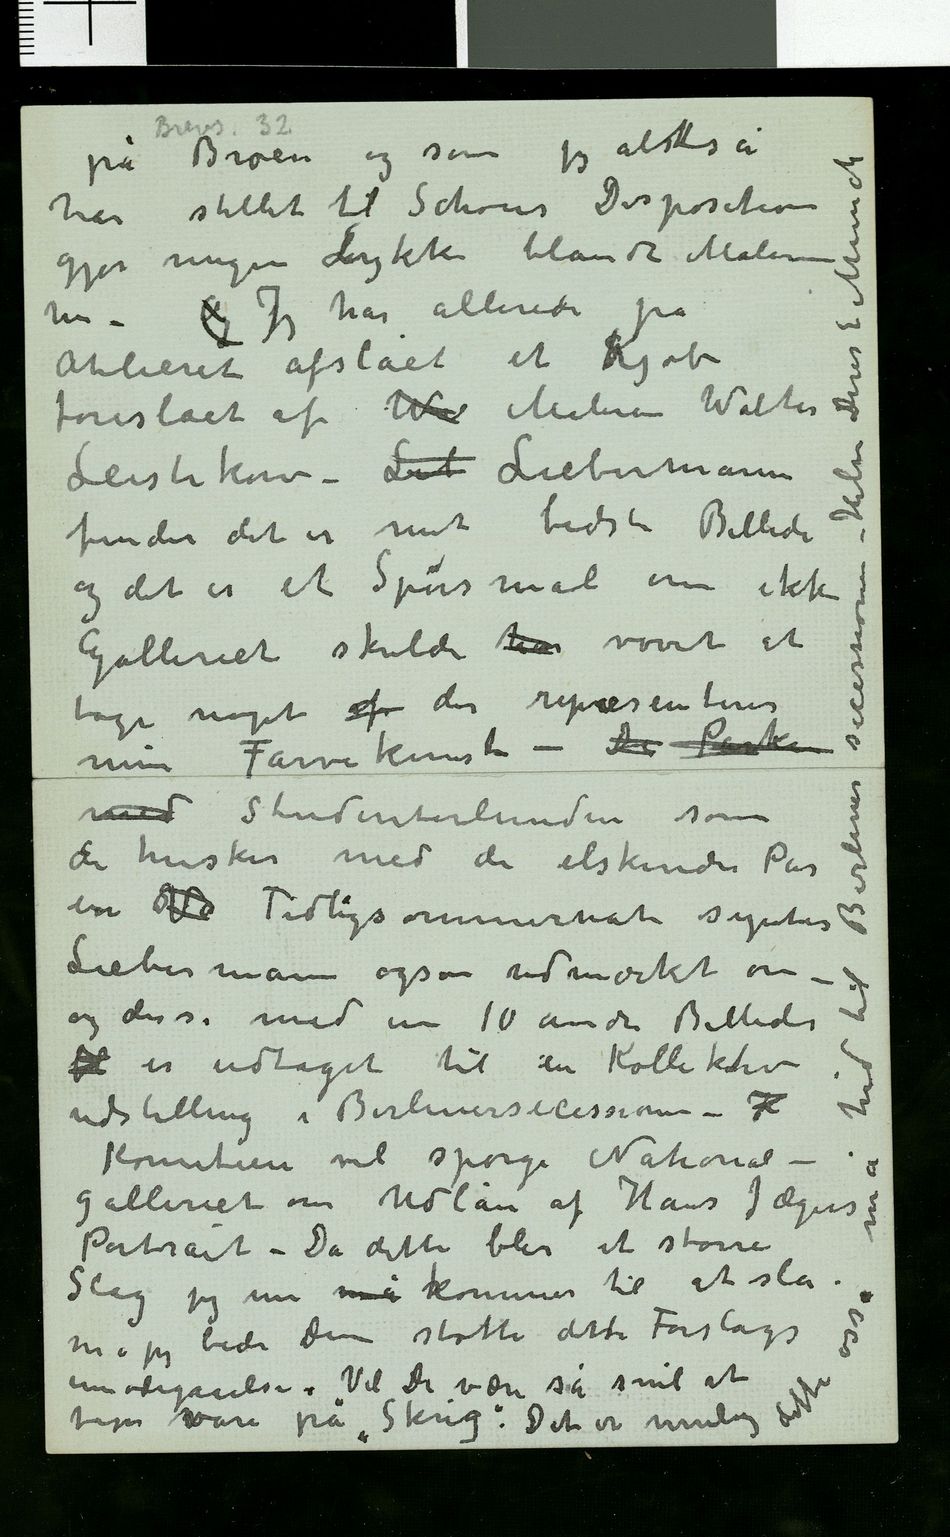 Brevs. 32
på Broen og som jeg altså
har stillet til Schous Disposition
gjør megen Lykke blandt Malerne
her – Og Jeg har allerede på
Atelieret afslået et Kjøb
foreslået af Wa Maleren Walter
Leistikow – Lieb Liebermann
finder det er mit bedste Billede
og det er et Spørsmål om ikke
Galleriet skulde ha vovet at
tage noget af der repræsenterer
min Farvekunst – De Parken
med Studenterlunden som
de husker med de elskende Par
en Tidligsommernat syntes
Liebermann også udmærket om –
og disse med en 10 andre Billeder
er udtaget til en Kollektiv
udstilling i Berlinersecessionen – K
Komiteen vil spørge National –
galleriet om Udlån af Hans Jægers
Portrait – Da dette blir et større
Slag jeg nu må kommer til at slå –
må jeg bede Dem støtte dette Forslags
imødegåelse. Vil De være så snil at
tage vare på „Skrig". Det er mulig dette
også må hid til Berlinersecessionen – Hilsen Deres E Munch